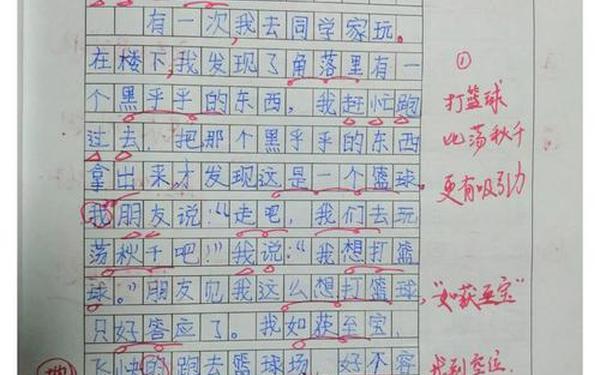 有一次,我去同学家玩。
在楼下,我发现了角落里有一
个黑乎乎的东西,我赶忙跑
过去,把那个黑乎乎的东西
拿出来,才发现这是一个篮球。
我朋友说:“走吧,我们去玩
荡秋千吧!”我说:“我想打篮
球。”朋友见我这么想打篮球,
只好答应了。我如获至宝,
飞快的跑去篮球场,好不容
①
打篮球
比荡秋千
更有吸引力
“如获至宝”
找到空位